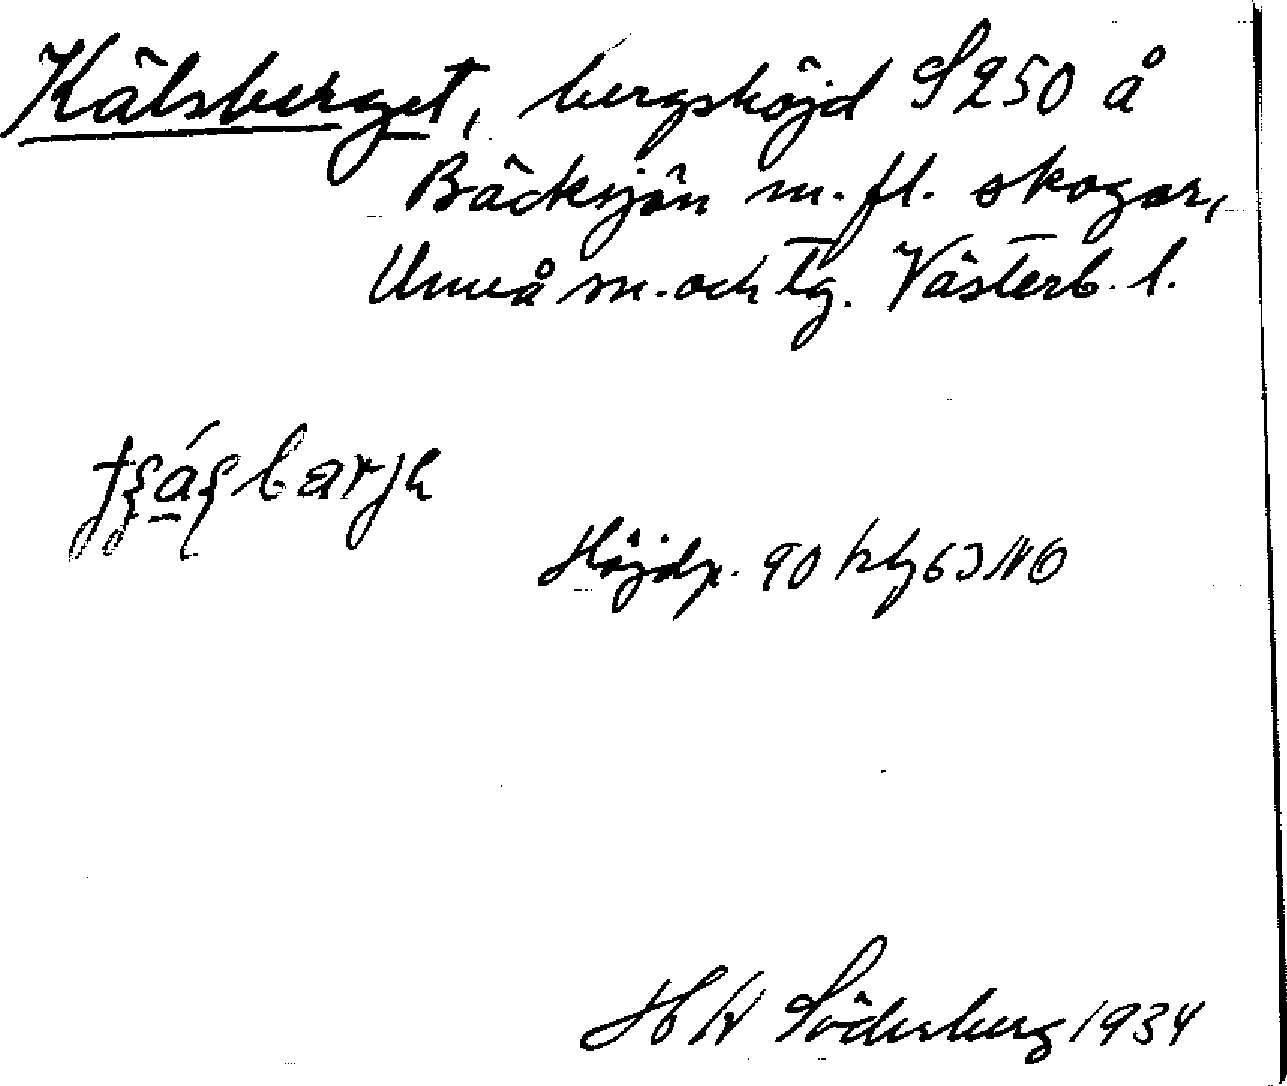 Kälsberget, bergshöjd S250 å
Bäcksjön m. fl. skogar,
Umeå sn. och tg. Västerb. l.
Höjdp. 90 kbl 63 NO
H W Söderberg 1934